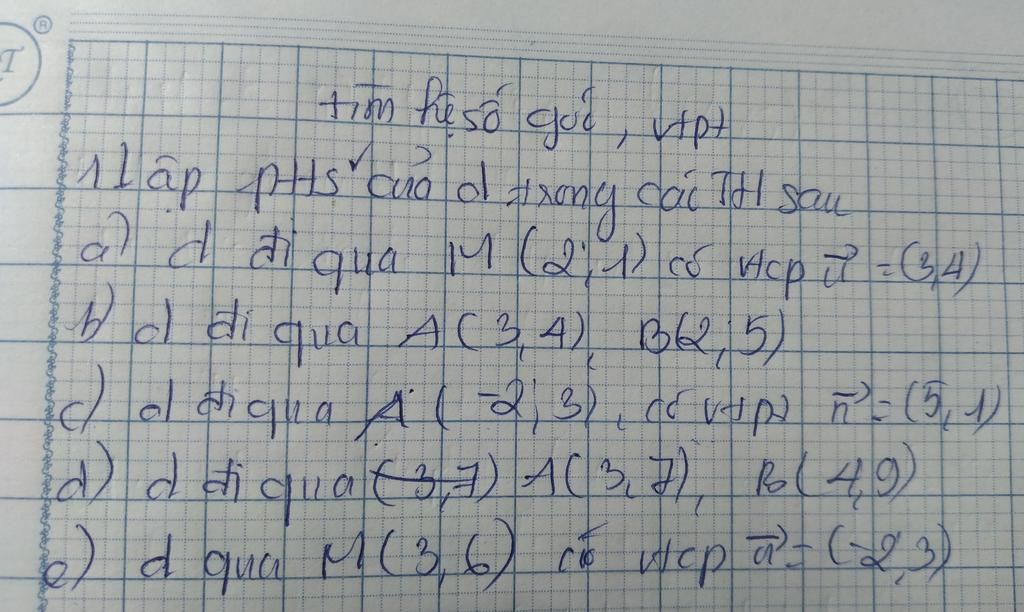 tìm hệ số góc, vtpt
1 Lập ptts của d trong các TH sau
a) d đi qua M (2; 1) có vtcp u = (3,4)
b) d đi qua A (3, 4), B(2; 5)
c) d đi qua A (-2; 3), có vtpt n = (5, 1)
d) d đi qua (3,7) A(3, 7), B(4,9)
e) d qua M(3, 6) có vtcp u = (-2,3)